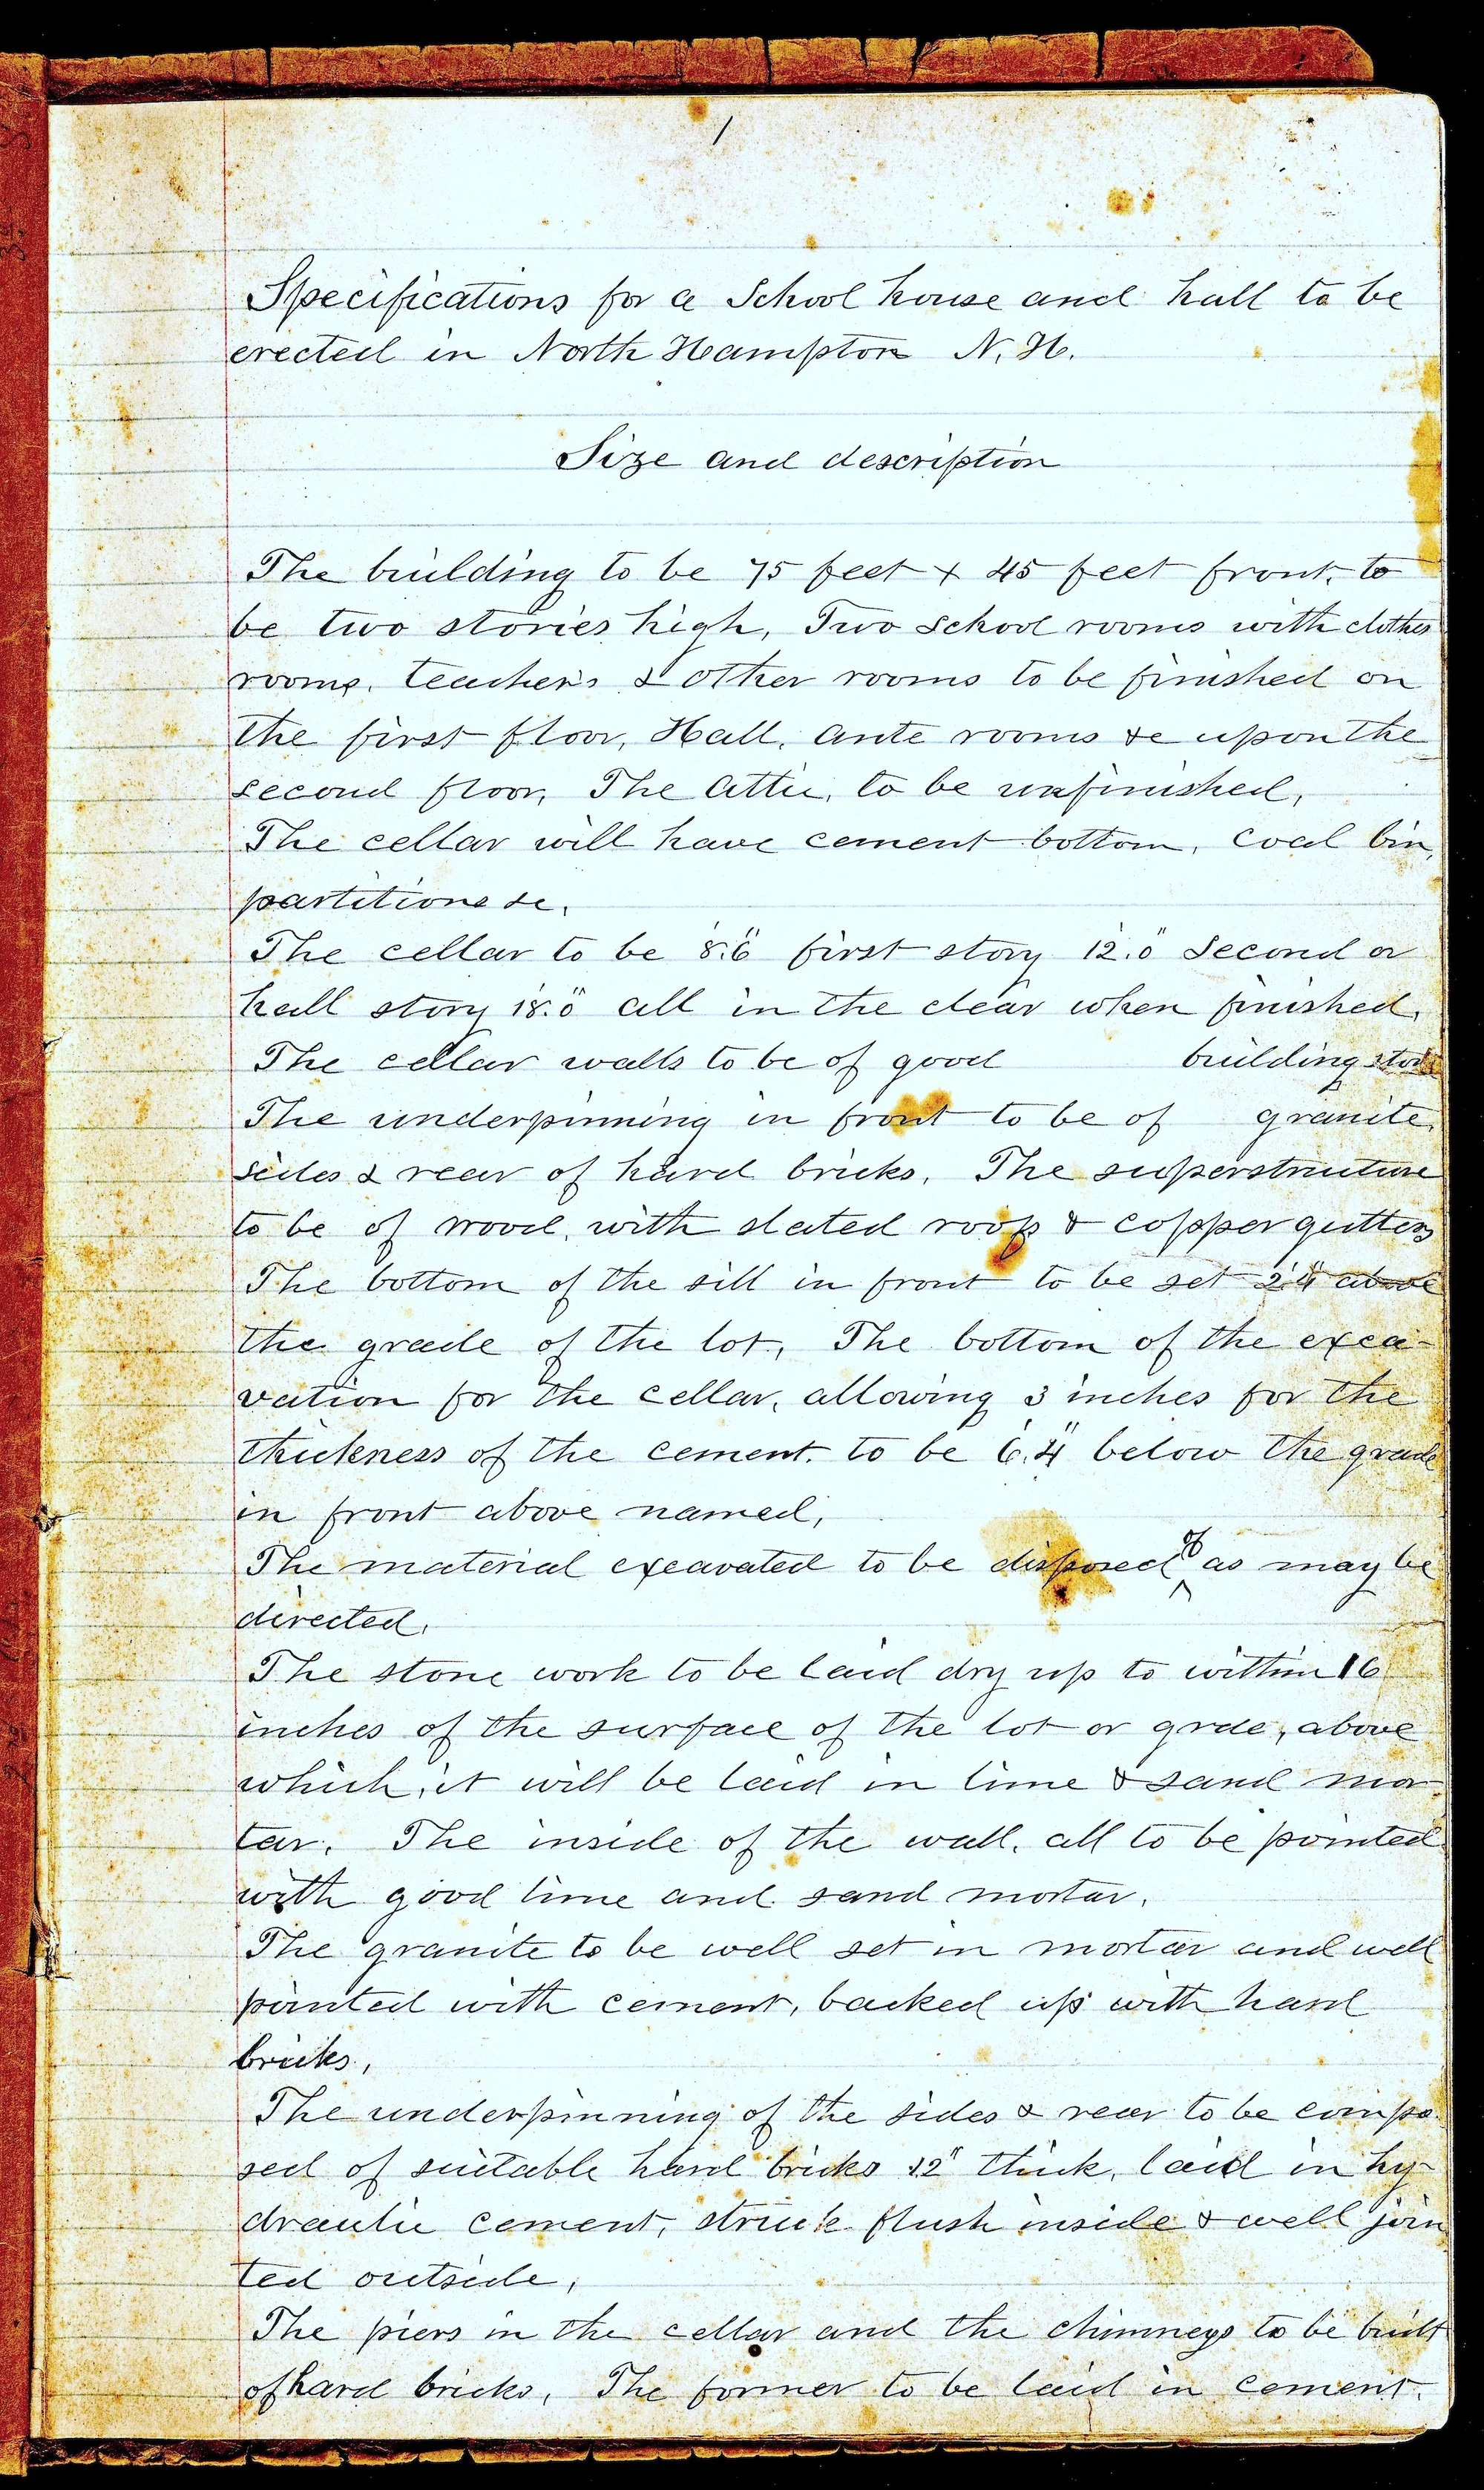 1
Specifications for a School house and hall to be
erected in North Hampton N. H.
Size and description
The building to be 75 feet + 45 feet front, to
be two stories high, Two School rooms with clothes
rooms, teacher's & other rooms to be finished on
the first floor, Hall, ante rooms &c upon the
second floor, The Attic, to be unfinished,
The cellar will have cement bottom, coal bin,
partitions &c,
The cellar to be 8'.6" first story 12'.0" Second or
hall story 18'.0" all in the clear when finished,
The cellar walls to be of good building stone
The underpinning in front to be of granite,
sides & rear of hard bricks, The superstructure
to be of wood, with slated roof & copper gutters
The bottom of the sill in front to be set 2'.4" above
the grade of the lot, The bottom of the exca-
vation for the cellar, allowing 3 inches for the
thickness of the cement, to be 6'.4" below the grade
in front above named,
The material excavated to be disposed of as may be
directed,
The stone work to be laid dry up to within 16
inches of the surface of the lot or grde, above
which, it will be laid in lime & sand mor
tar. The inside of the wall, all to be pointed
with good lime and sand mortar,
The granite to be well set in mortar and well
pointed with cement, backed up with hard
bricks,
The underpinning of the sides & rear to be compo
sed of suitable hard bricks 12" thick, laid in hy-
draulic cement, struck flush inside & well join
ted outside,
The piers in the cellar and the chimneys to be built
of hard bricks, The former to be laid in cement,